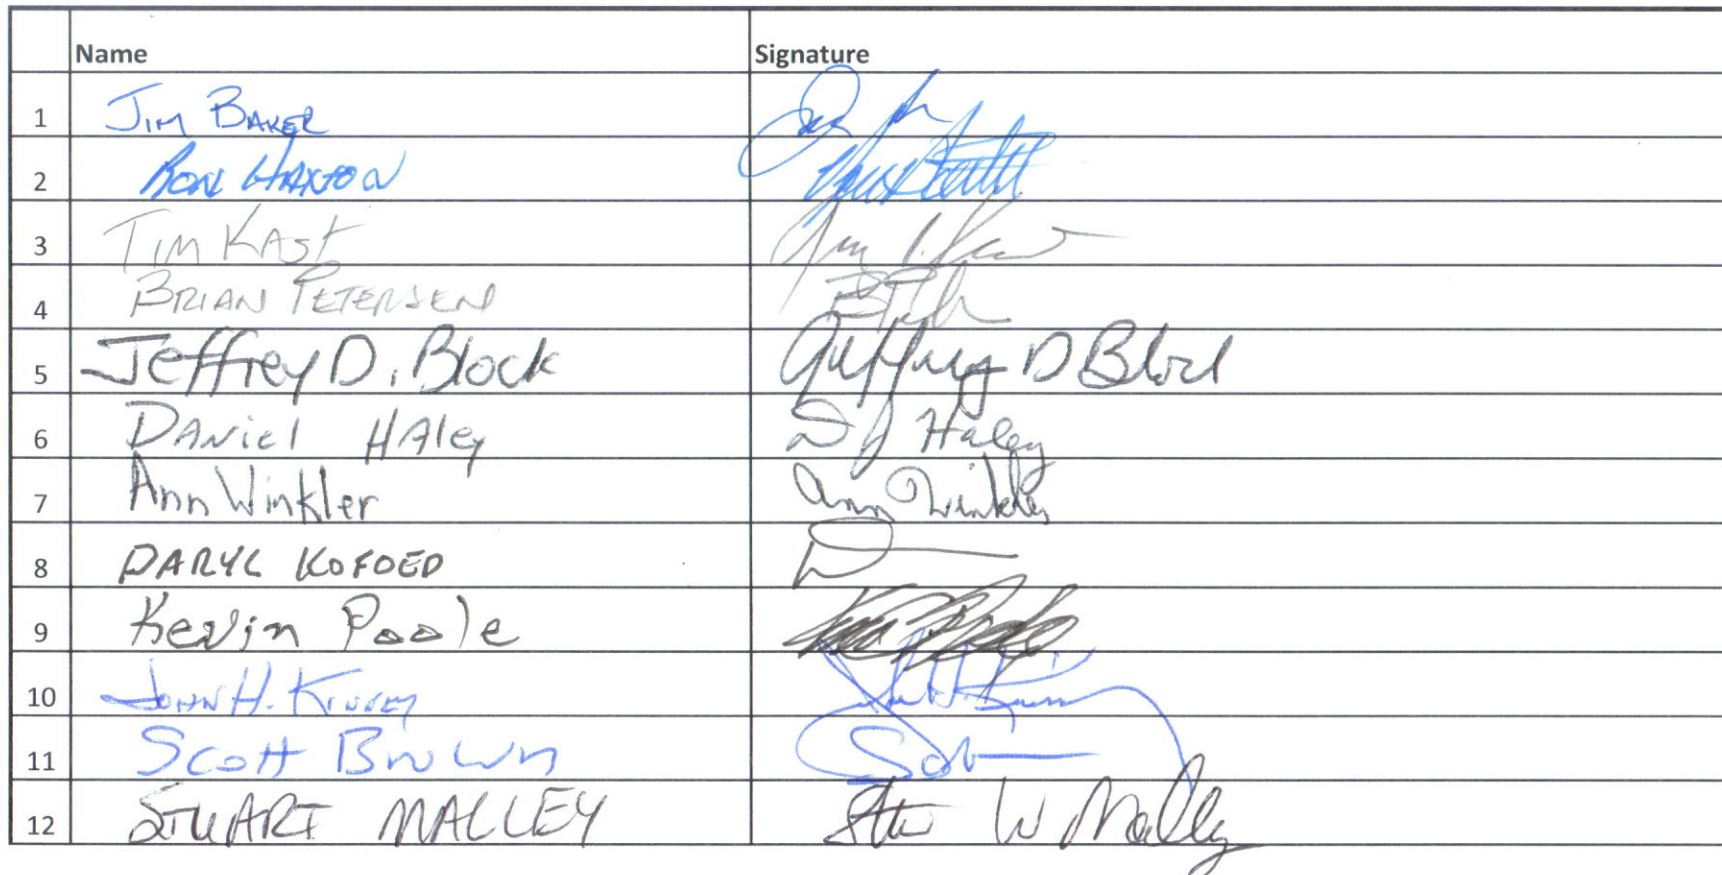 Name Signature
1 Jim Baker
2 Ron
3 Tim Kast
4 Brian Petersen
5 Jeffrey D. Block Jeffrey D Block
6 Daniel Haley D J Haley
7 Ann Winkler Ann Winkler
8 DARYL KOFOED
9 Kevin Poole
10 John H. Kinney
11 Scott Brown
12 STUART MALLEY W Malley